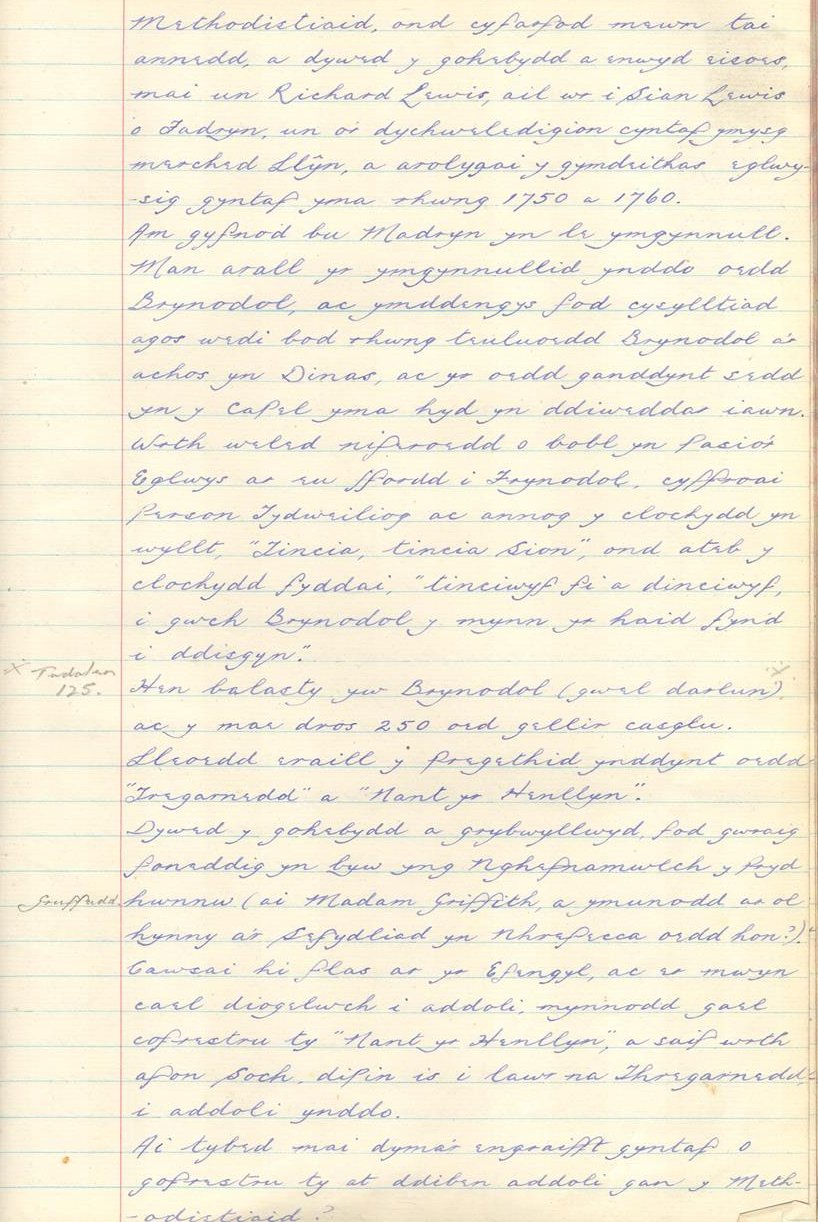 Methodistiaid, ond cyfarfod mewn tai
annedd, a dywed y gohebydd a enwyd eisoes,
mai un Richard Lewis, ail wr i Sian Lewis
o Fadryn, un o'r dychweledigion cyntaf ymysg
merched Llŷn, a arolygai y gymdeithas eglwy-
-sig gyntaf yma rhwng 1750 a 1760.
Am gyfnod bu Madryn yn le ymgynnull.
Man arall yr ymgynnullid ynddo oedd
Brynodol, ac ymddengys fod cysylltiad
agos wedi bod rhwng teuluoedd Brynodol a'r
achos yn Dinas, ac yr oedd ganddynt sedd
yn y Capel yma hyd yn ddiweddar iawn.
Wrth weled niferoedd o bobl yn pasio'r
Eglwys ar eu ffordd i Frynodol, cyffroai
Person Tydweiliog ac annog y clochydd yn
wyllt, "Tincia, tincia Sion", ond ateb y
clochydd fyddai, "tinciwyf fi a dinciwyf,
i gwch Brynodol y mynn yr haid fynd
i ddisgyn".
x Tudalen
125.
Hen balasty yw Brynodol (gwel darlun) x
ac y mae dros 250 oed gellir casglu.
Lleoedd eraill y pregethid ynddynt oedd
"Tregarnedd" a "Nant yr Henllyn".
Dywed y gohebydd a grybwyllwyd, fod gwraig
foneddig yn byw yng Nghefnamwlch y pryd
Gruffudd. hwnnw (ai Madam Griffith, a ymunodd ar ol
hynny a'r Sefydliad yn Nhrefecca oedd hon?).
Cawsai hi flas ar yr Efengyl, ac er mwyn
cael diogelwch i addoli, mynnodd gael
cofrestru ty "Nant yr Henllyn", a saif wrth
afon Soch, dipin is i lawr na Thregarnedd,
i addoli ynddo.
Ai tybed mai dyma'r engraifft gyntaf o
gofrestru ty at ddiben addoli gan y Meth-
-odistiaid?